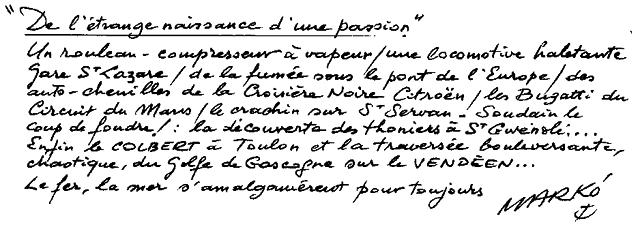 "De l'étrange naissance d'une passion"
Un rouleau-compresseur à vapeur/une locomotive haletante
Gare St Lazare/de la fumée sous le pont de l'Europe/des
auto-chenilles de la Croisière Noire Citroën/les Bugatti du
Circuit du Mans/le crachin sur St Servan-Soudain le
coup de foudre/: la découverte des thoniers à St Gwénolé....
Enfin le COLBERT à Toulon et la traversée bouleversante,
chaotique, du Golfe de Gascogne sur le VENDÉEN...
Le fer, la mer s'amalgamèrent pour toujours
MARKÓ